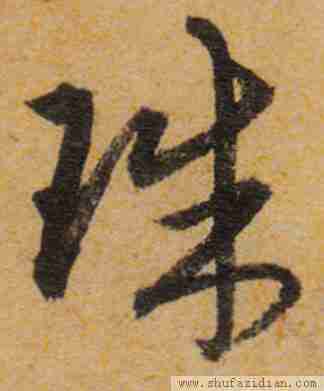 珠
www.shufazidian.com